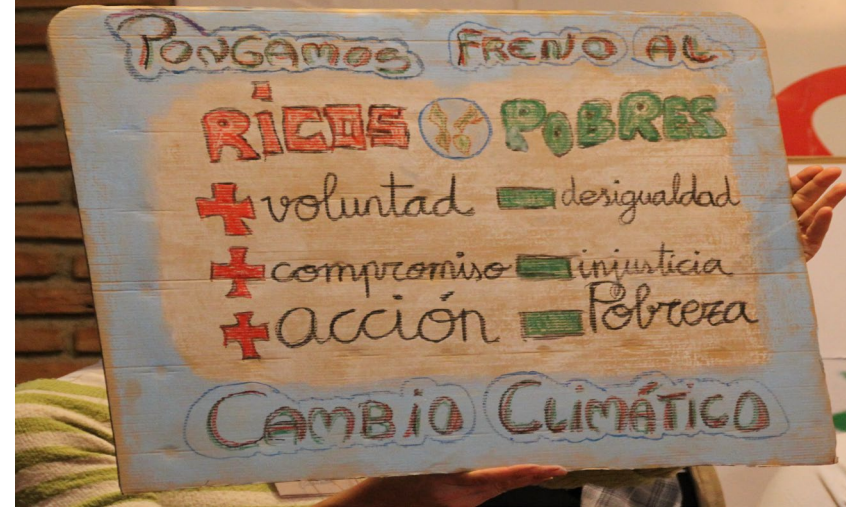 PONGAMOS FRENO AL
RiCOS Y POBRES
+ voluntad - desigualdad
+ compromiso - injusticia
+ acción - Pobreza
CAMBiO CLiMÁTiCO